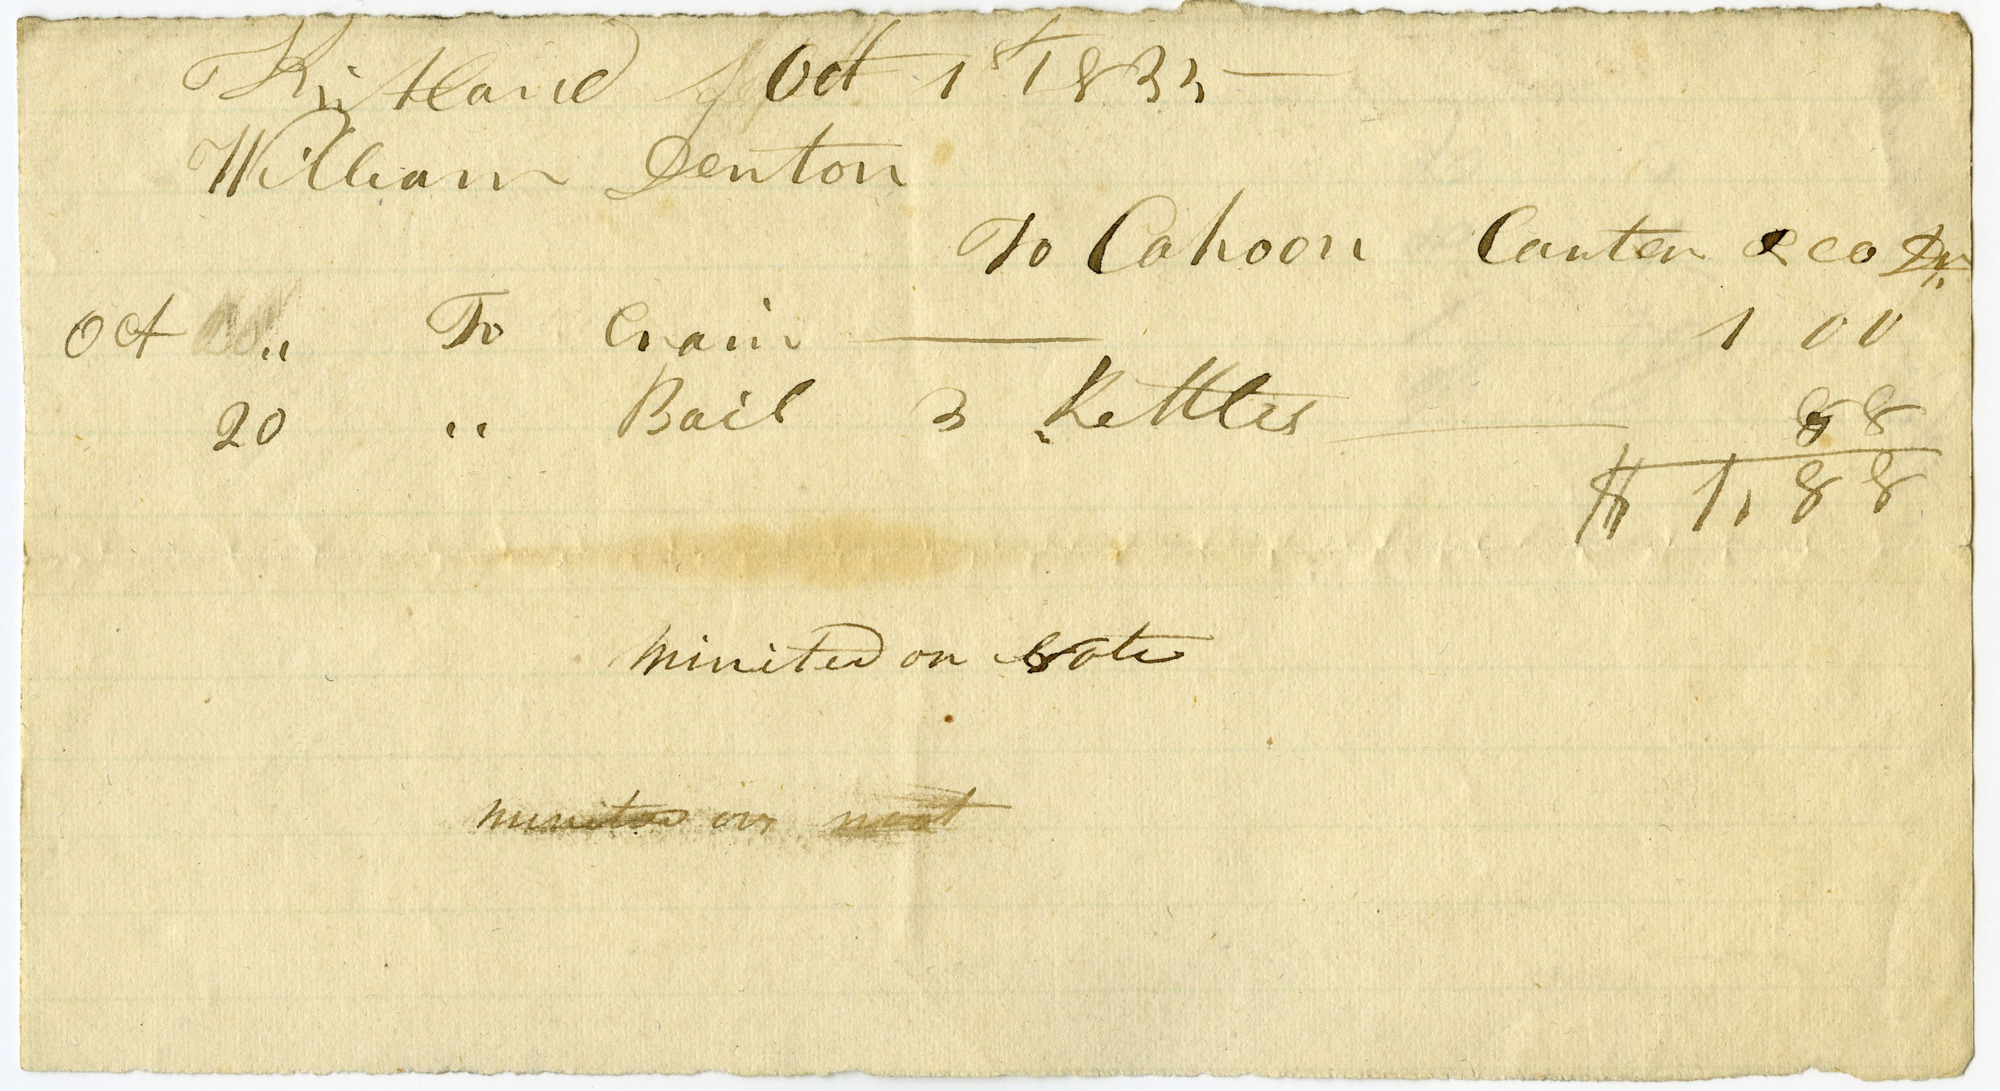 Kirtland Oct 1st 1833
William Denton
To Cahoon Carter & co Dr.
Oct „ To Crain 1 00
20 „ Bail 3 Kettles 88
$ 1,88
minited on
minited on noat